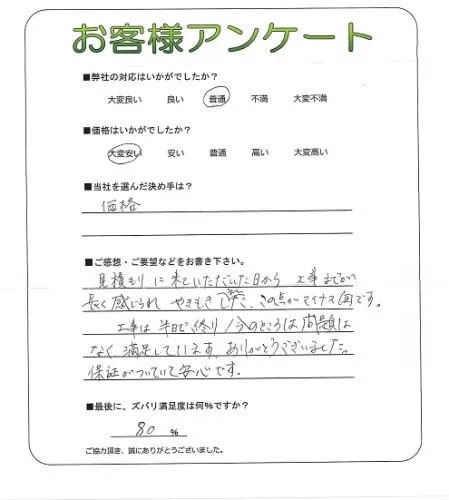 お客様アンケート
■弊社の対応はいかがでしたか?
大変良い 良い 普通 不満 大変不満
■価格はいかがでしたか?
大変安い 安い 普通 高い 大変高い
■当社を選んだ決め手は?
価格
■ご感想・ご要望などをお書き下さい。
見積もりに来ていただいた日から 工事までが
長く感じられ やきもきした この点がマイナス面です。
工事は半日で終り 今のところは問題は
なく満足しています。ありがとうございました。
保証がついていて安心です。
■最後に、ズバリ満足度は何%ですか?
80 %
ご協力頂き、誠にありがとうございました。